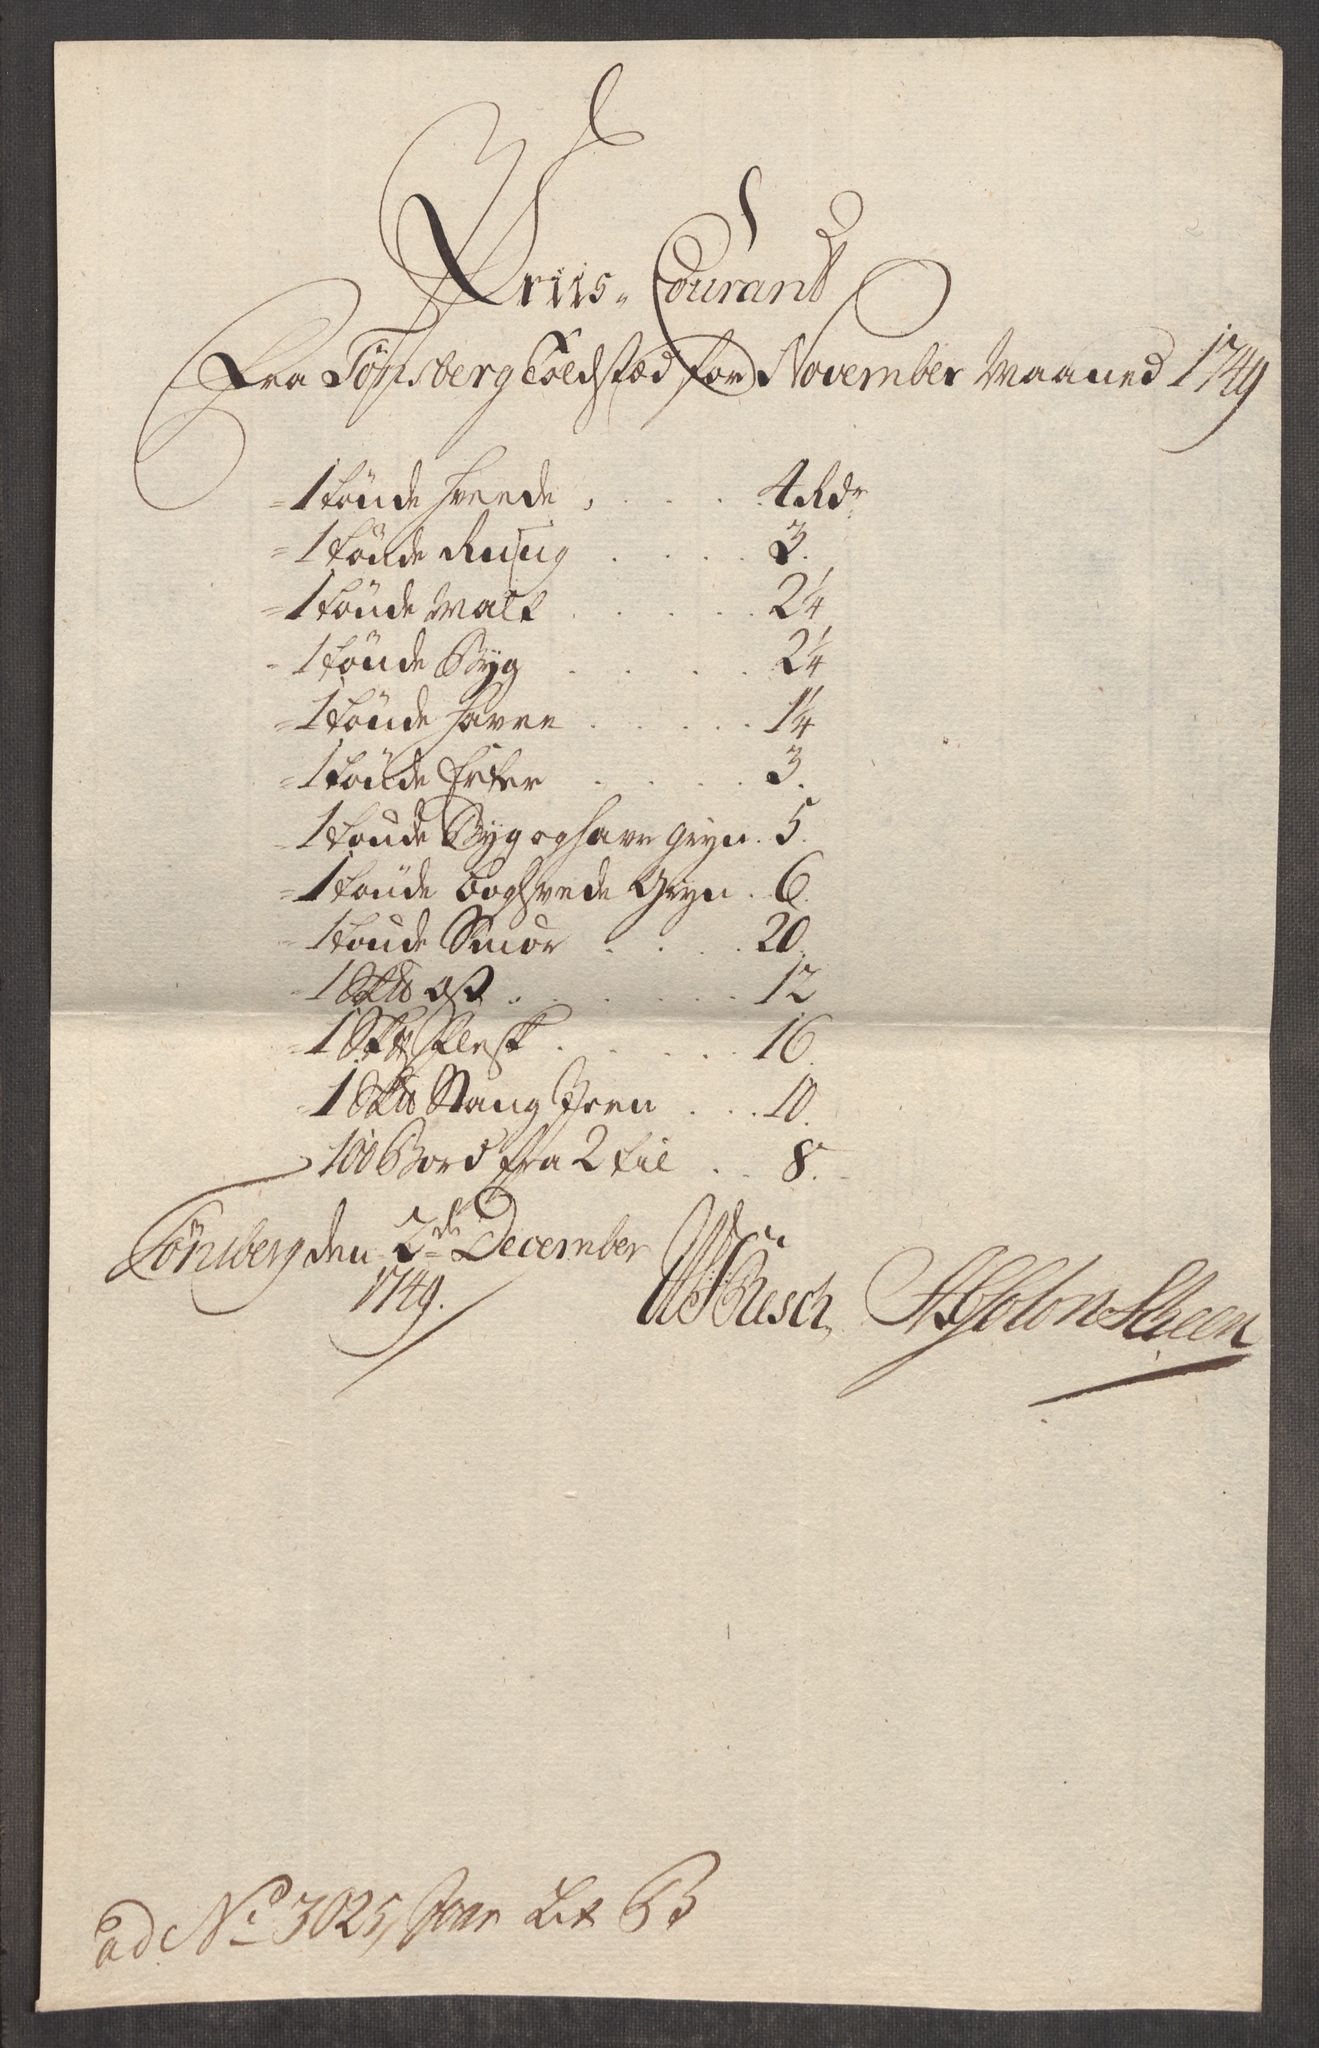 Priis- Courant
Fra Tönsberg Toldstæd for November Maaned 1749
1 tönde hveede . . . 4 Rdr
1 tönde Rug . . . 3.
1 tönde Malt . . . 2¼
1 tönde Byg . . . 2¼
1 tönde havre . . . 1¼
1 tönde Erter . . . 3.
1 tönde Byg og havre gryn . 5.
1 tönde boghvede Gryn . 6.
1 tönde Smör . . . 20.
1 Skt ost . . . 12
1 Skt flesk . . . 16.
1 Skt Stang Jern . . . 10.
100 Bord fra 2 til . . 8.
Tönsberg den 2de December
1749.
Büsch Absolon Scheen
ad No 3025, Lit B